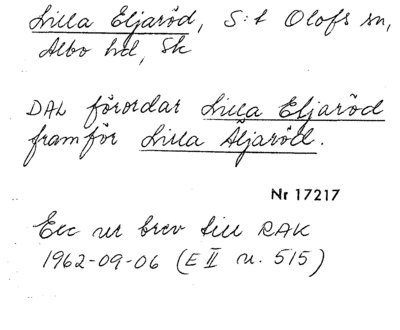 Lilla Eljaröd, S:t Olofs sn,
Albo hd, Sk
DAL förordar Lilla Eljaröd
framför Lilla Äljaröd.
Nr 17217
Exc ur brev till RAK
1962-09-06 (E II u. 515)